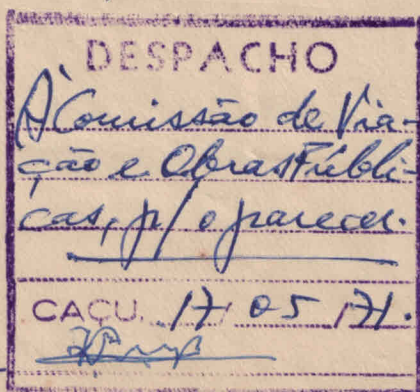 DESPACHO
À Comissão de Via-
ção e Obras Públi-
cas, p/ o parecer.
CAÇU. 17/ 05 /71.